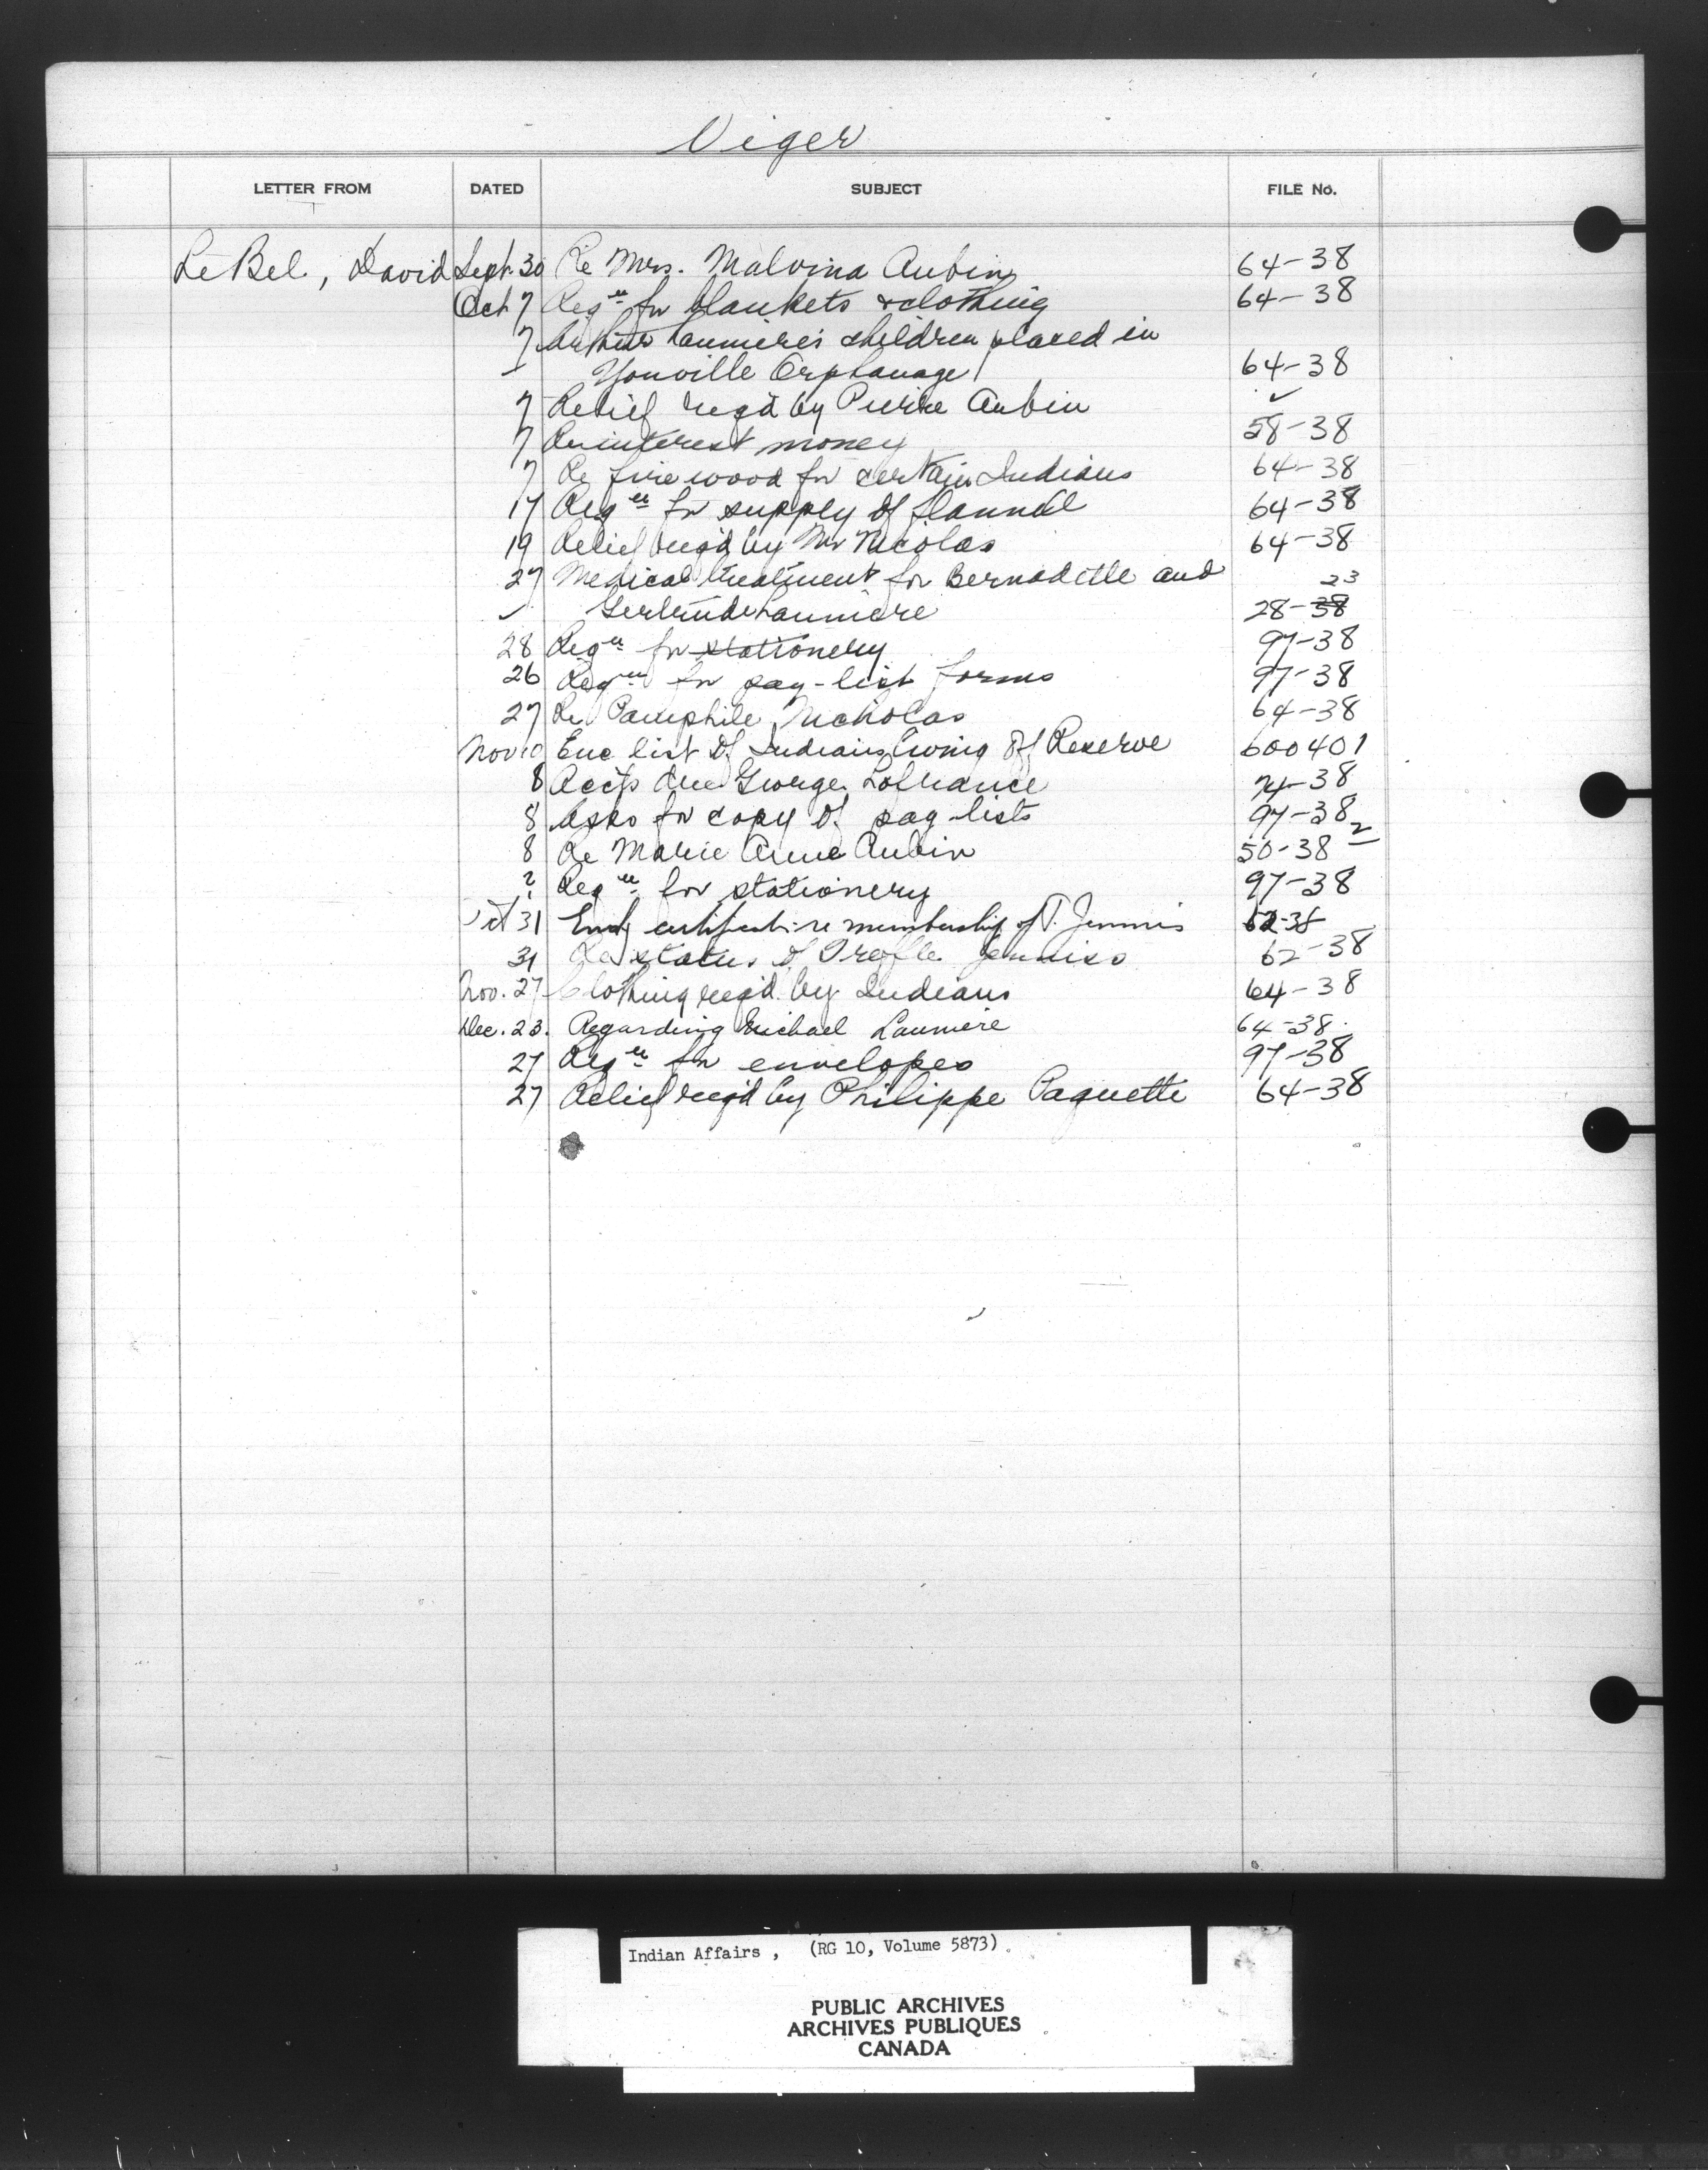 Viger
LETTER FROM DATED SUBJECT FILE No.
LeBel, David Sept. 30 Re Mrs. Malvina Aubin 64-38
Oct 7 Reqn for blankets & clothing 64-38
7 Launiere's children placed in
Youville Orphanage 64-38
7 Relief req'd by Pierre Aubin ✓
7 Re interest money 58-38
7 Re fire wood for certain Indians 64-38
17 Reqn for supply of flannel 64-38
19 Relief req'd by Mr Nicolas 64-38
27 Medical treatment for Bernadette and 23
✓ Gertrude Launiere 28-38
28 Reqn for stationery 97-38
26 Reqn for pay-list forms 97-38
27 Re Pamphile Nicholas 64-38
Nov 10 Enc list of Indians living off Reserve 600401
8 Accts due George Lafrance 74-38
8 Asks for copy of pay-lists 97-38
8 Re Marie Anne Aubin 50-38 2
? Reqn for stationery 97-38
Oct 31 certificate re membership of T. Jenniss 62-38
31 Re status of Treffle Jenniss 62-38
Nov. 27 Clothing req'd by Indians 64-38
Dec. 23. Regarding Michael Launiere 64-38.
27 Reqn for envelopes 97-38
27 Relief req'd by Philippe Paquette 64-38
Indian Affairs , (RG 10, Volume 5873)
PUBLIC ARCHIVES
ARCHIVES PUBLIQUES
CANADA